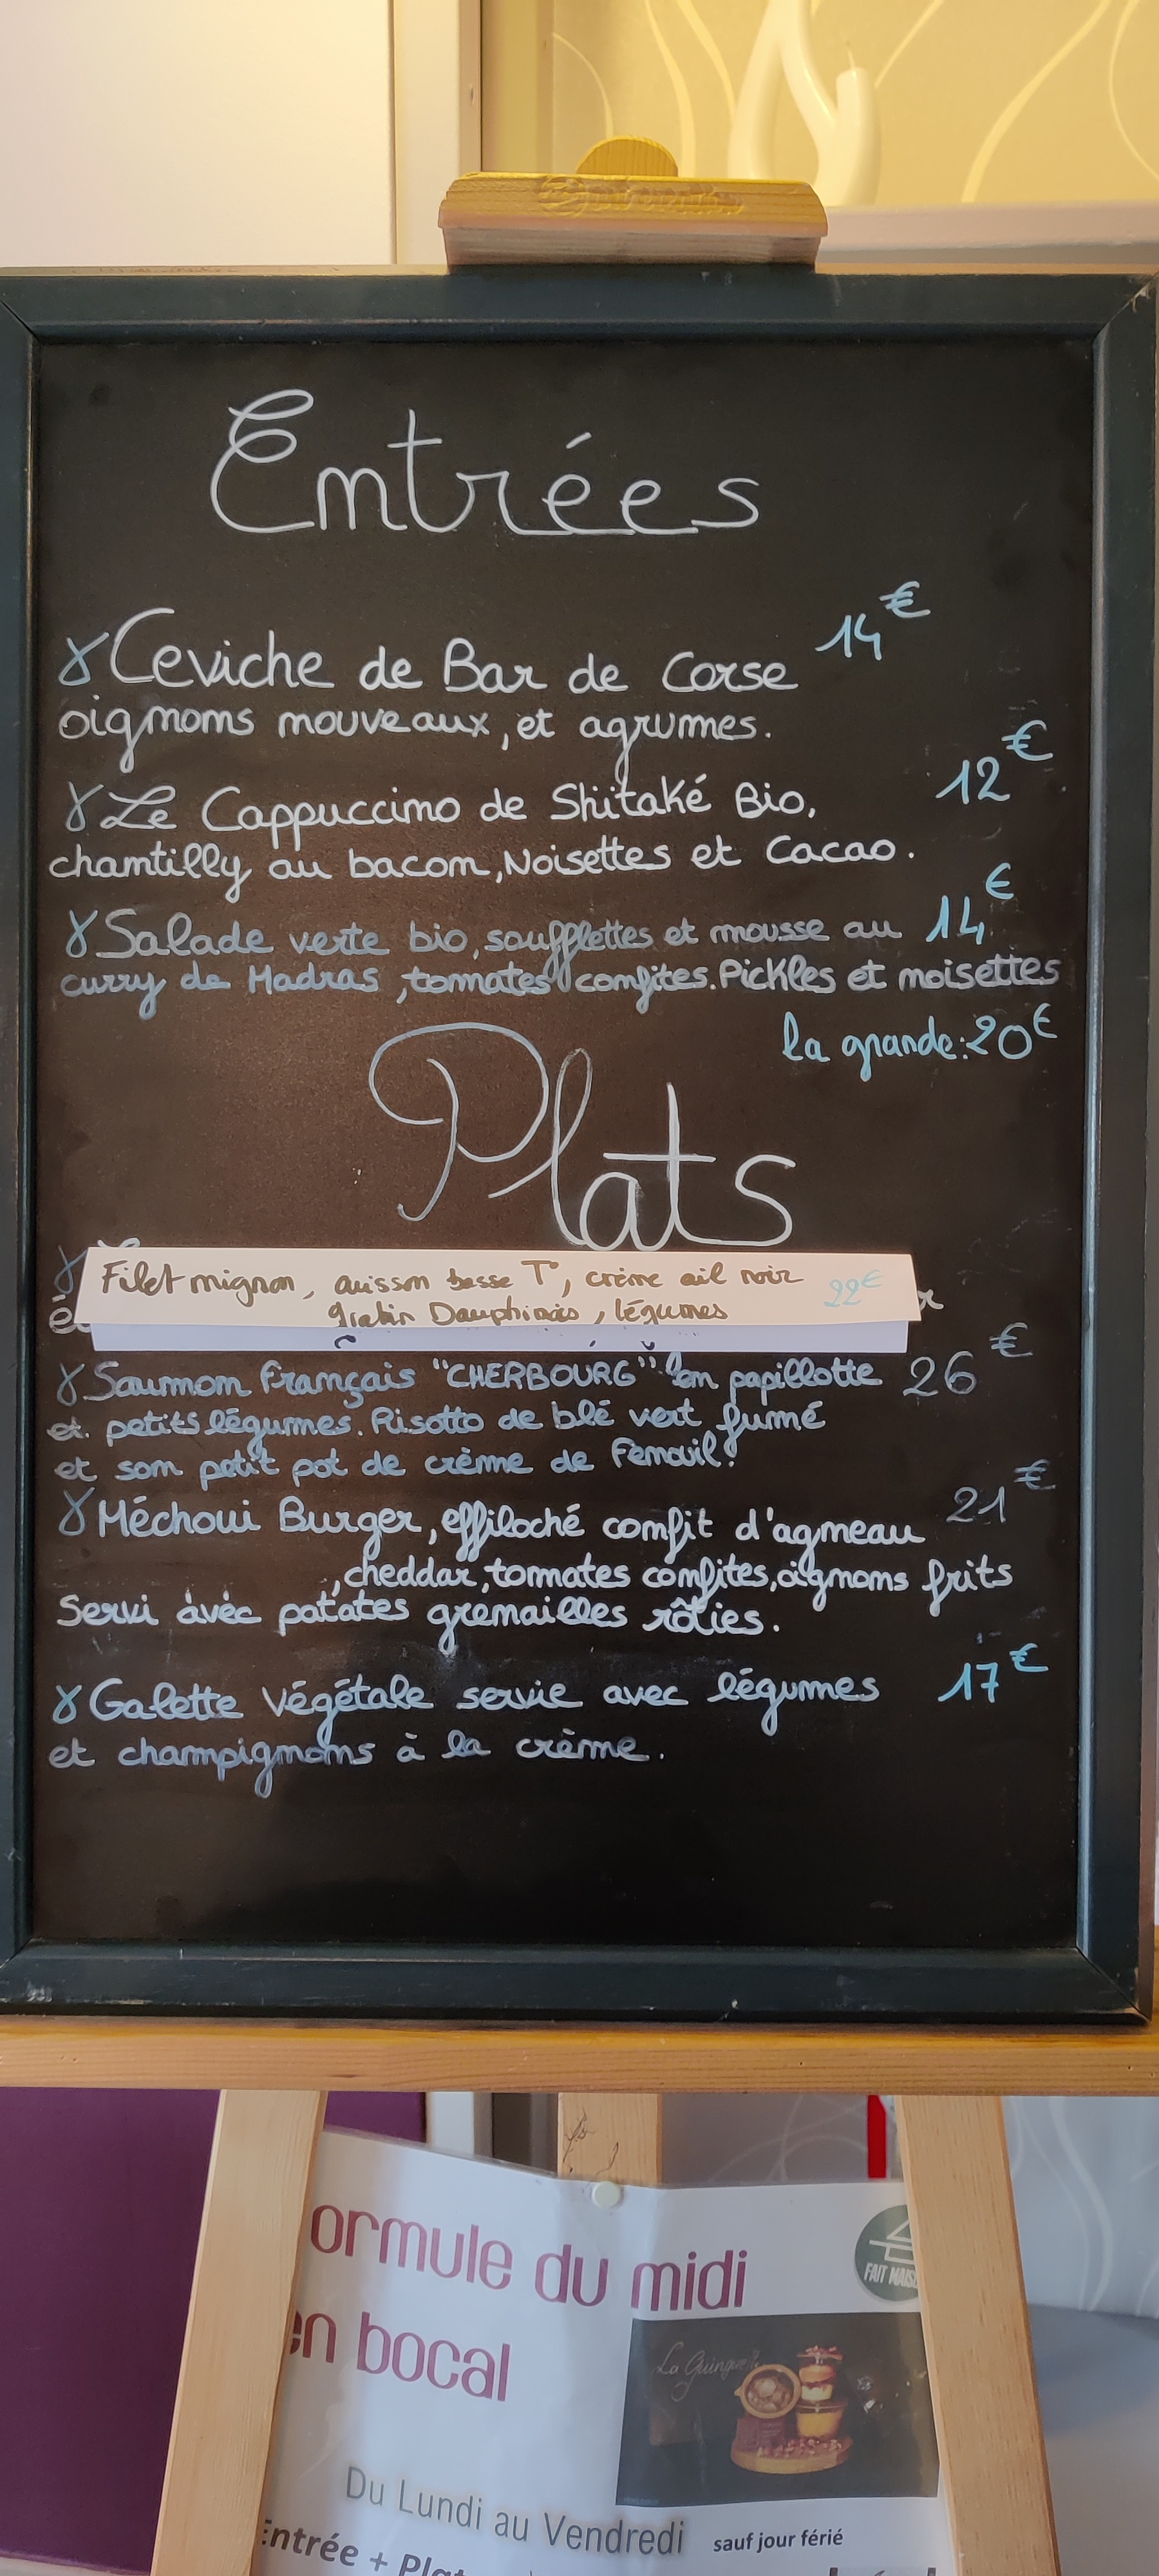 Entrées
Ceviche de Bar de Corse 14€
oignons nouveaux, et agrumes.
Le Cappuccino de Shitaké Bio, 12€
chantilly au bacon, Noisettes et Cacao.
Salade verte bio, soufflettes et mousse au 14€
curry de Madras, tomates confites. Pickles et noisettes
la grande: 20€
Plats
Filet mignon, cuisson basse T°, crème ail noir 22€
gratin Dauphinois, légumes
Saumon français "CHERBOURG" en papillotte 26€
et petits légumes. Risotto de blé vert fumé
et son petit pot de crème de Fenouil!
Méchoui Burger, effiloché confit d'agneau 21€
, cheddar, tomates confites, oignons frits
Servi avec patates grenailles rôties.
Galette végétale servie avec légumes 17€
et champignons à la crème.
ormule du midi
en bocal
FAIT MAIS
La Guinguette
Du Lundi au Vendredi sauf jour férié
Entrée + Plat